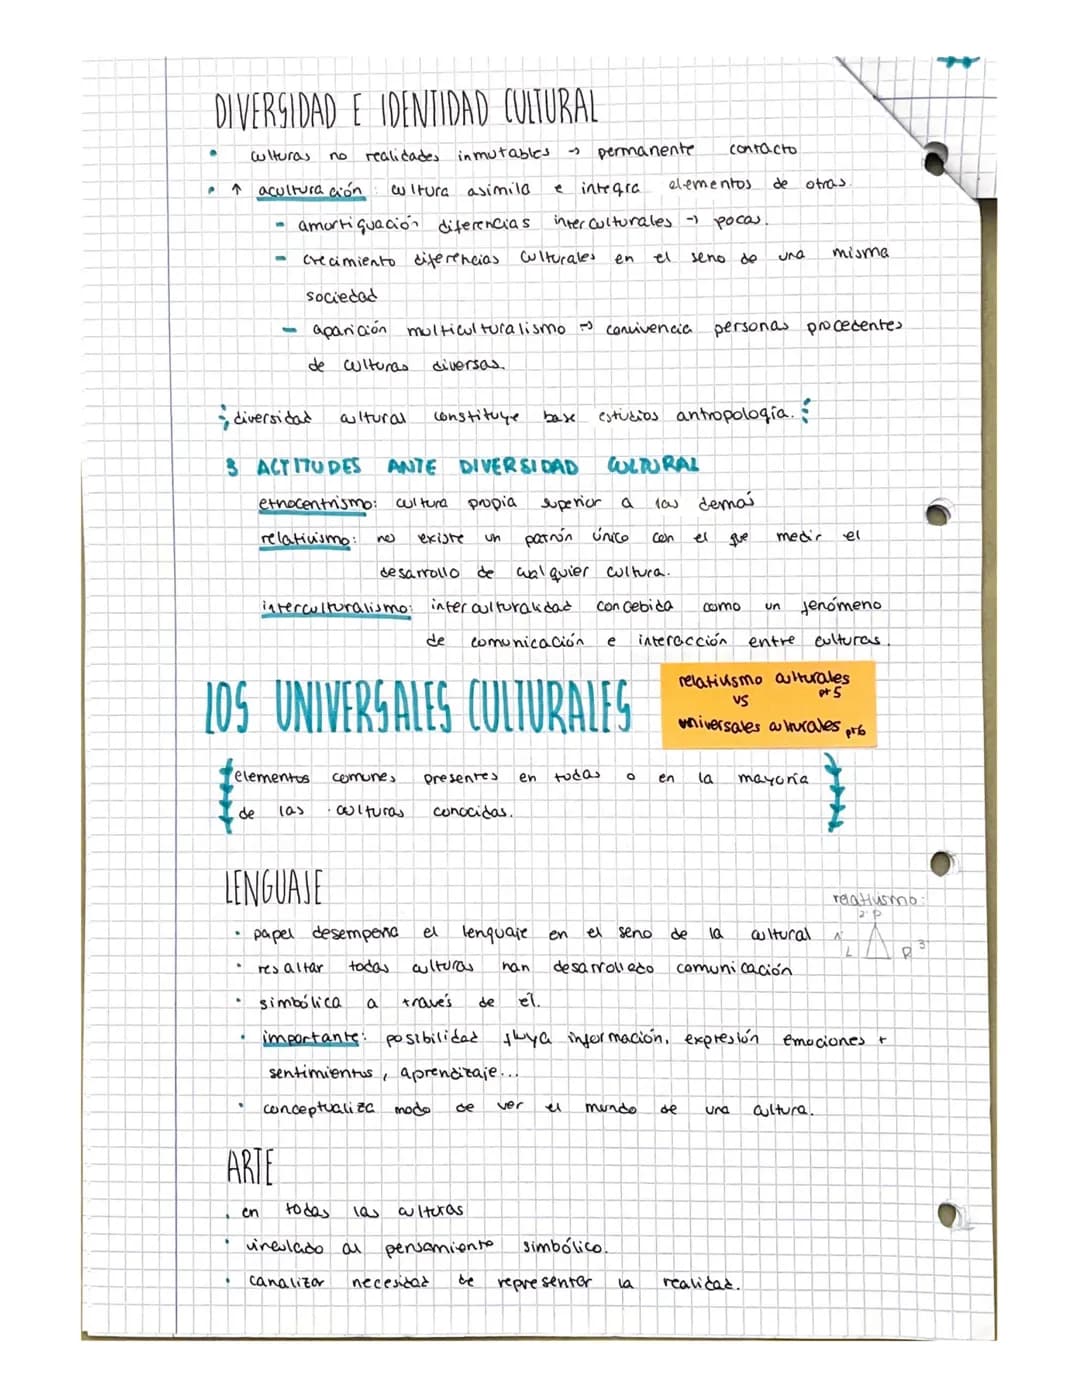 DIVERSIDAD E IDENTIDAD CULTURAL
• culturas no realidades inmutables → permanente contacto
• ↑ aculturación: cultura asimila e integra elementos de otras.
- amortiguación diferencias interculturales → pocas.
- crecimiento diferencias culturales en el seno de una misma
sociedad
- aparición multiculturalismo → convivencia personas procedentes
de culturas diversas.
diversidad cultural constituye base estudios antropología.
3 ACTITUDES ANTE DIVERSIDAD CULTURAL
etnocentrismo: cultura propia superior a las demás
relativismo: no existe un patrón único con el que medir el
desarrollo de cualquier cultura.
interculturalismo: interculturalidad concebida como un fenómeno
de comunicación e interacción entre culturas.
LOS UNIVERSALES CULTURALES
relativismo culturales
pt 5
vs
universales culturales pt6
elementos comunes presentes en todas o en la mayoría
de las culturas conocidas.
LENGUAJE
relativismo:
2º P
1º L
R 3º
• papel desempeña el lenguaje en el seno de la cultural
• resaltar todas culturas han desarrollado comunicación
• simbólica a través de él.
• importante: posibilidad fluya información, expresión emociones +
sentimientos, aprendizaje...
• conceptualiza modo de ver el mundo de una cultura.
ARTE
• en todas las culturas
• vinculado al pensamiento simbólico.
• canalizar necesidad de representar la realidad.